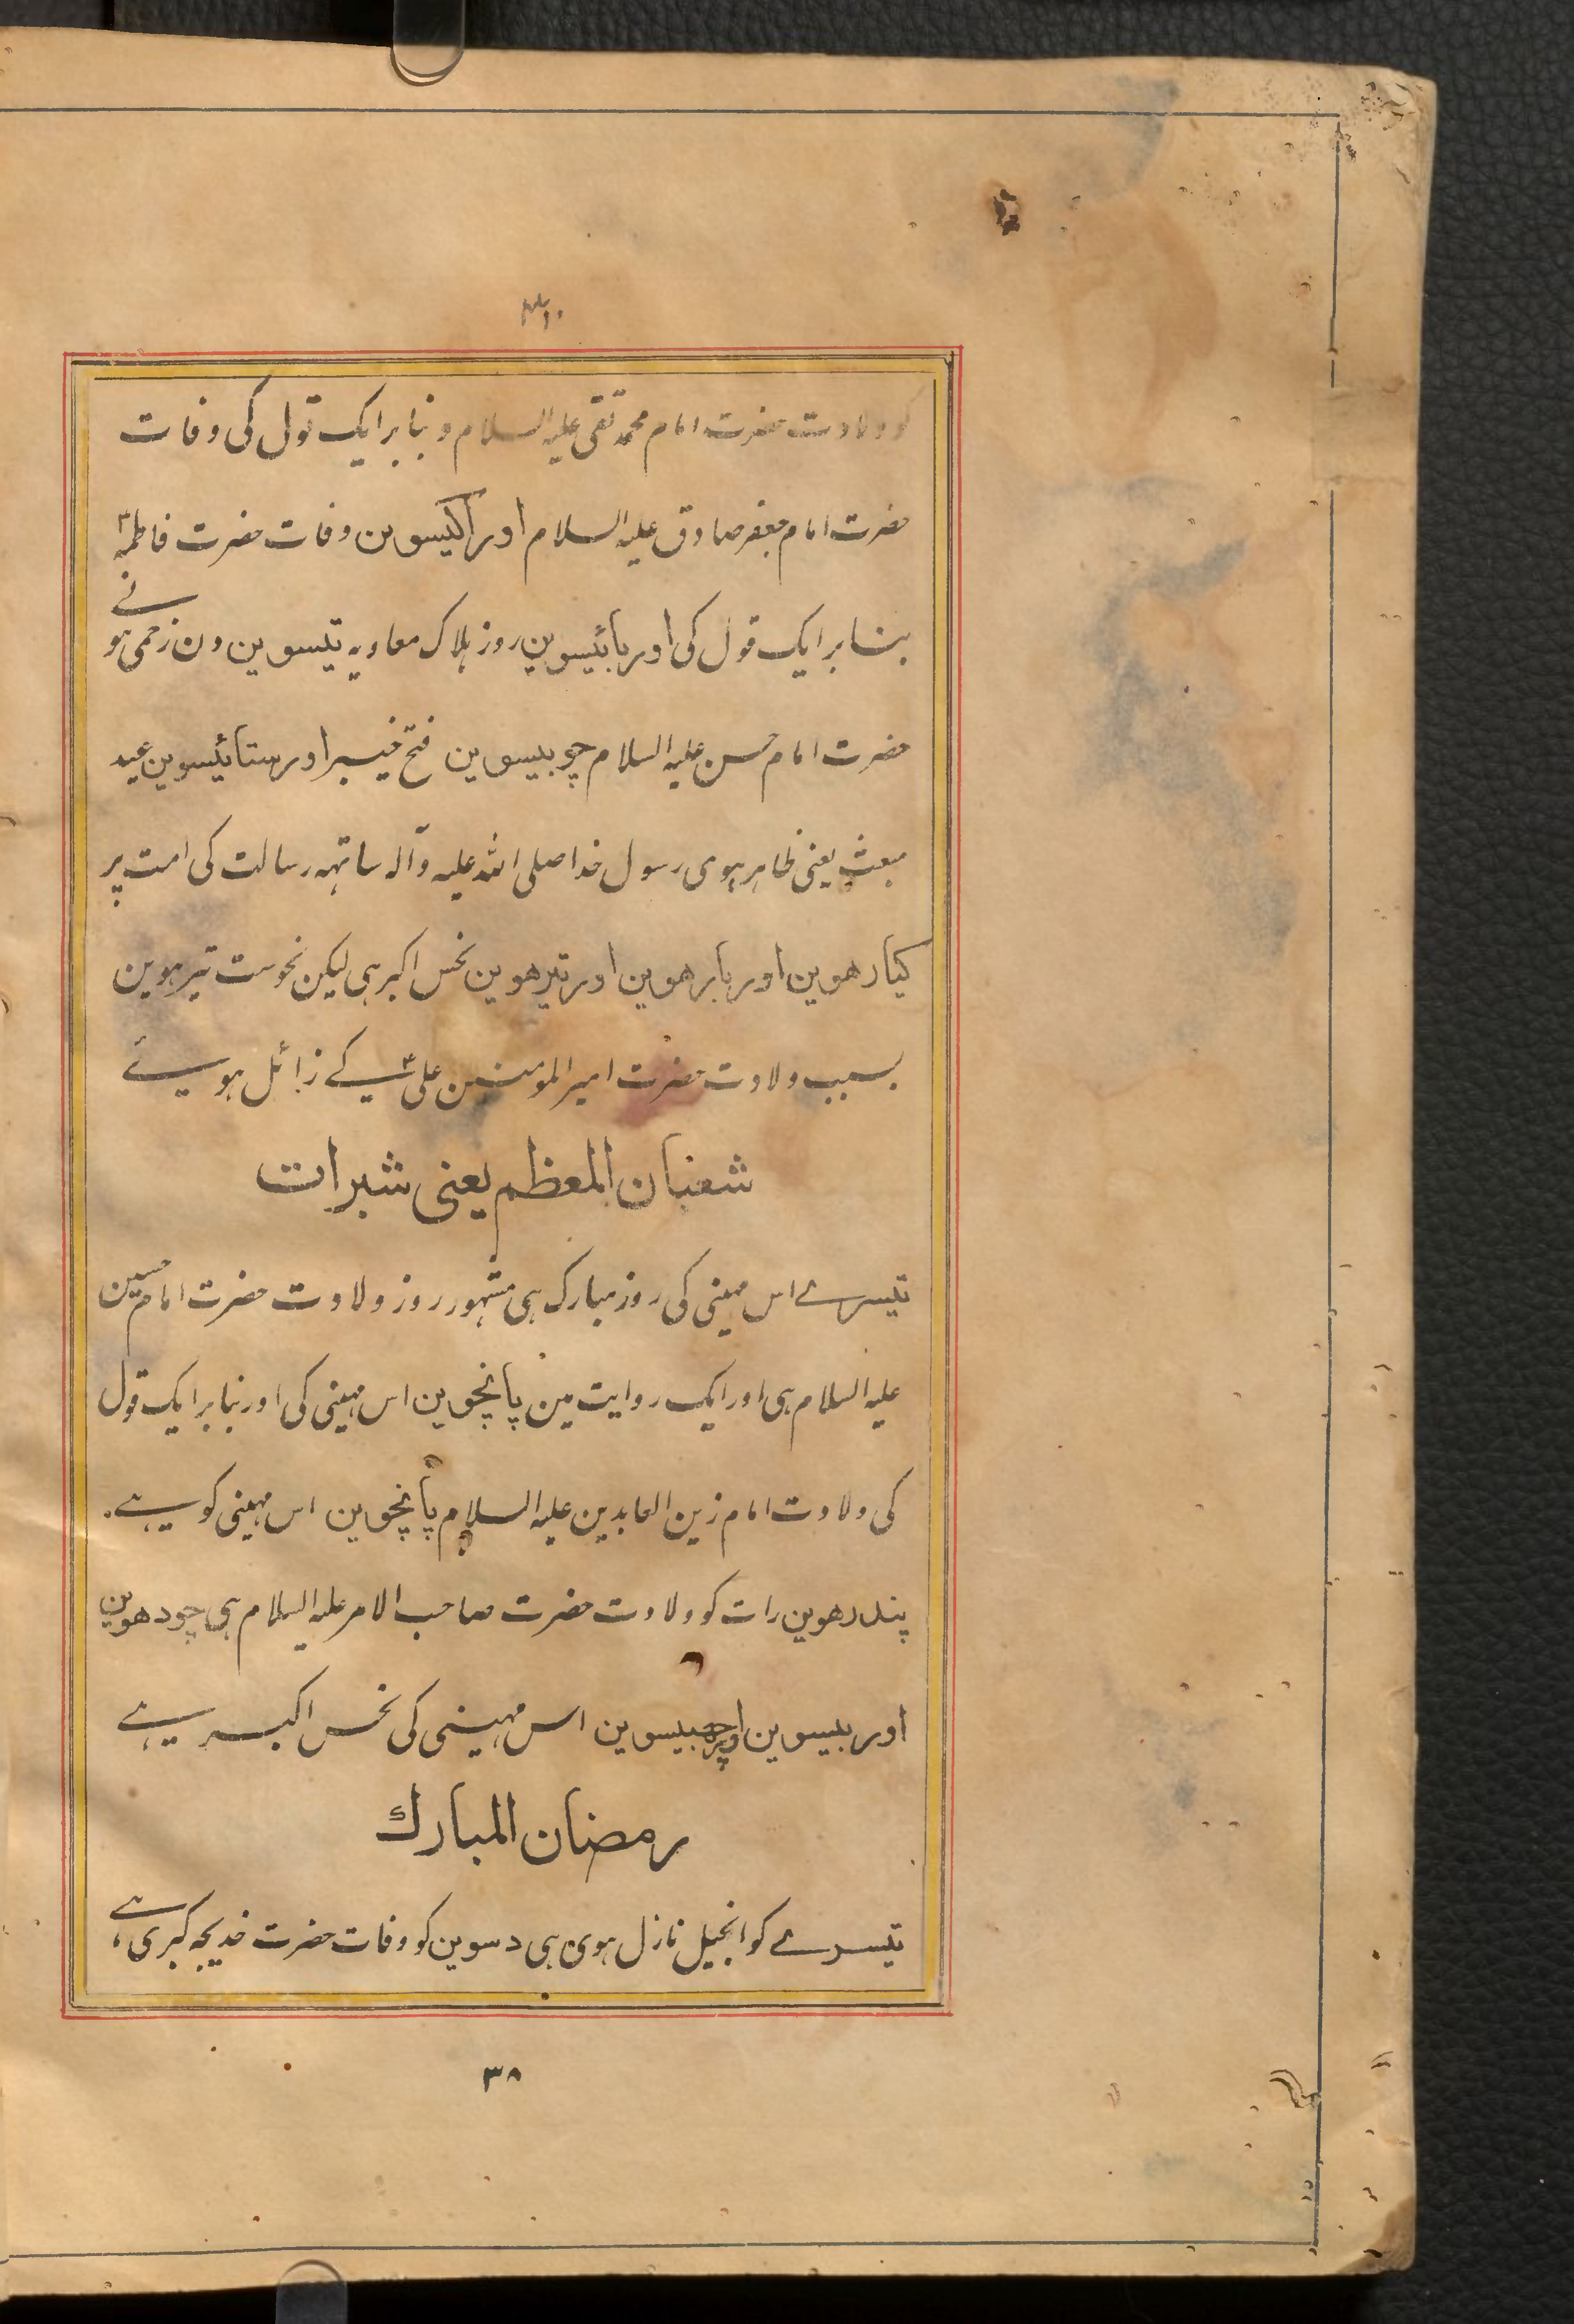 کو ولادت حضرت امام محمد تقی علیہ السلام و بنا بر ایک قول کی وفات
حضرت امام جعفر صادق علیہ السلام اور اکیسوین وفات حضرت فاطمہؑ
بنا بر ایک قول کی اور بائیسوین روز ہلاک معاویہ تیسوین دن زخمی ہونے
حضرت امام حسن علیہ السلام چوبیسوین فتح خیبر اور ستائیسوین عید
مبعث یعنی ظاہر ہوی رسول خدا صلی اللہ علیہ وآلہ ساتہہ رسالت کی امت پر
کیارھوین اور بارھوین اور تیرھوین نحس اکبر ہی لیکن نحوست تیرہوین
بسبب ولادت حضرت امیر المومنین علیؑ کے زائل ہو
شعبان المعظم یعنی شبرات
تیسرے اس مہینی کی روز مبارک ہی مشہور روز ولادت حضرت امام حسین
علیہ السلام ہی اور ایک روایت مین پانچوین اس مہینی کی اور بنا بر ایک قول
کی ولادت امام زین العابدین علیہ السلام پانچوین اس مہینی کو ہے۔
پندرھوین رات کو ولادت حضرت صاحب الامر علیہ السلام ہی چودھوین
اور بیسوین اور چھبیسوین اس مہینی کی نحس اکبر ہے
رمضان المبارک
تیسرے کو انجیل نازل ہوی ہی دسوین کو وفات حضرت خدیجہ کبری ہے،
۳۸